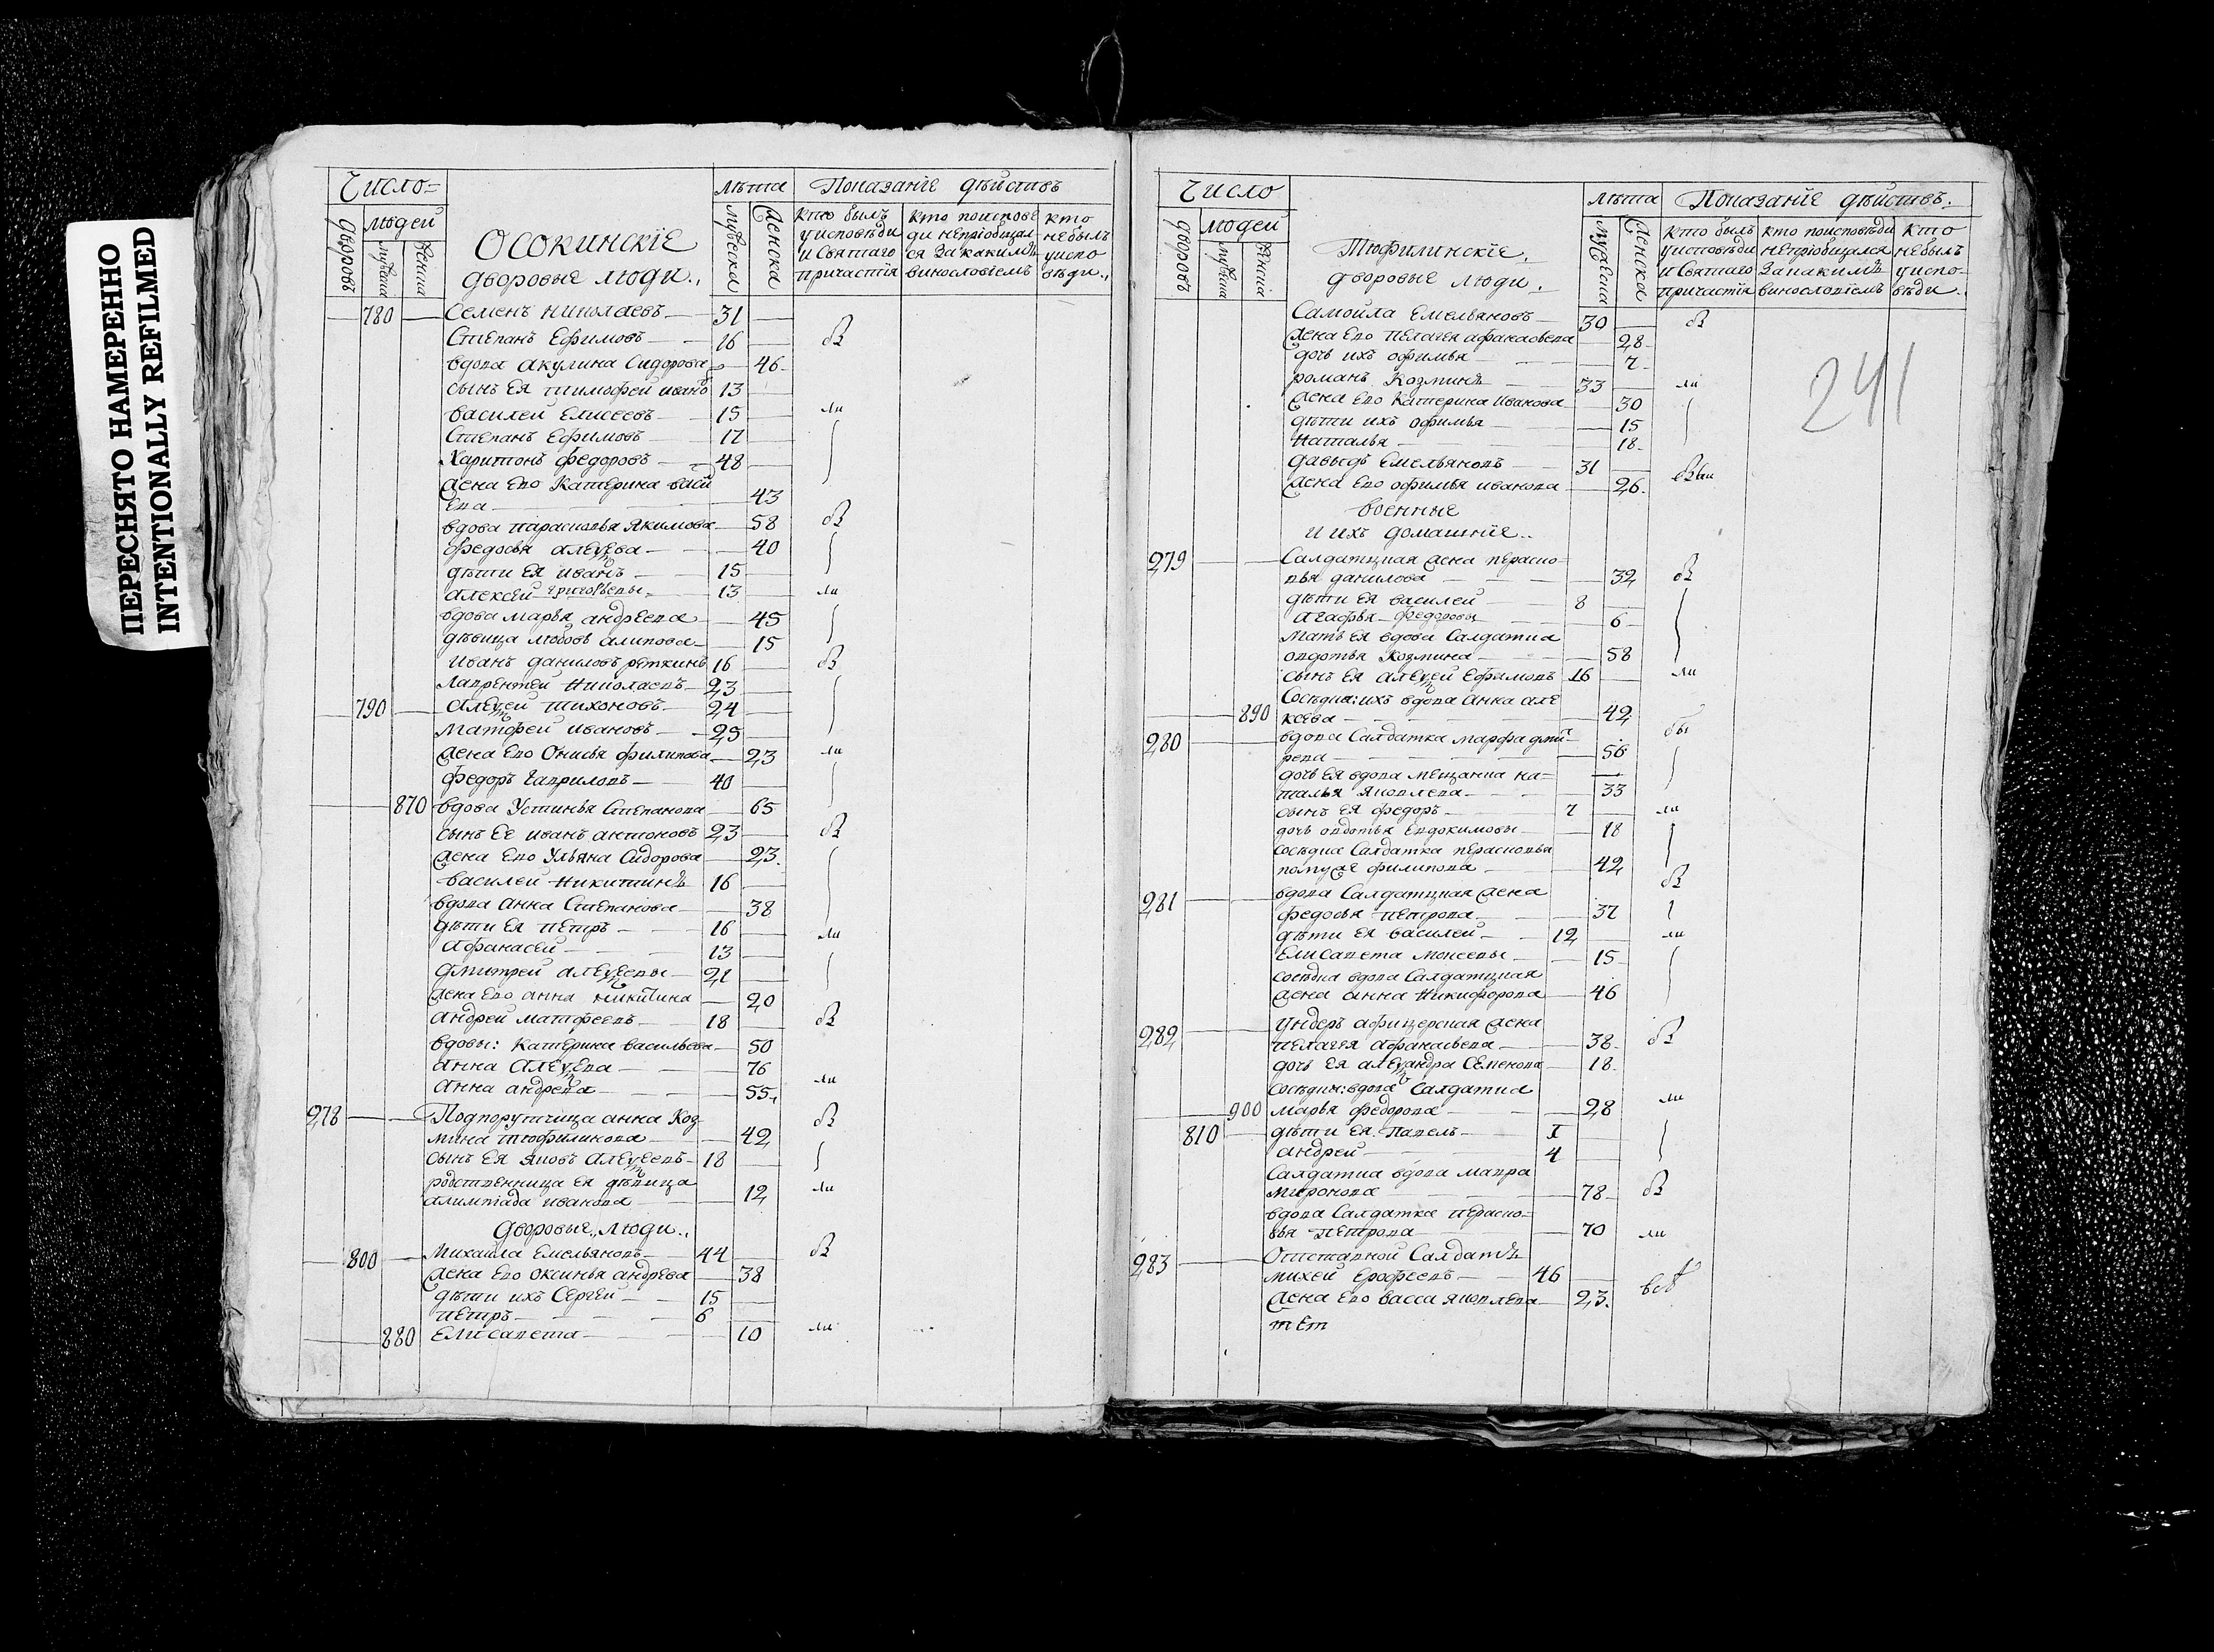 ПЕРЕСНЯТО НАМЕРЕННО
INTENTIONALLY REFILMED
Число
людей
дворовъ
мужеска
женска
Осокинскіе
дворовые люди.,
лѣта
мужеска
женска
Показаніе дѣйствъ
кто былъ
у исповѣди
и Святаго
причастія
кто поиспове
ди непріобщал
ся за какимъ
винословіемъ
кто
небылъ
у испо
вѣди.,
780 Семенъ Николаевъ 31
Степанъ Ефимовъ 16
вдова Акулина Сидорова 46
сынъ ея Тимофей Ивано 13
Василей Елисеевъ 15
Степанъ Ефимовъ 17
Харитонъ Федоровъ 48
жена ево Катерина Васи
ева 43
вдова Парасковья Якимова 58
Федосья Алеѯева 40
дѣти ея Иванъ 15
Алексей Григорьевы 13
вдова Марья Андреева 45
дѣвица Любовь 15
Иванъ Даниловъ 16
Лаврентей Николаевъ 23
790 Алеѯей Тихоновъ 24
Матфей Ивановъ 25
жена ево Онисья Филипова 23
Федоръ Гавриловъ 40
870 вдова Устинья Степанова 65
сынъ ее Иванъ Антоновъ 23
жена ево Ульяна Сидорова 23
Василей Никитинъ 16
вдова Анна Степанова 38
дѣти ея Петръ 16
Афанасей 13
Дмитрей Алеѯеевы 21
жена ево Анна Никитина 20
Андрей Матфеевъ 18
вдовы: Катерина Васильева 50
Анна Алеѯева 76
Анна Андреева 55
278 Подпорутчица Анна Коз
мина Тюфилинова 42
сынъ ея Яковъ Алеѯеевъ 18
родственница ея дѣвица
Алимпіада Иванова 12
Дворовые люди.,
800 Михайла Емельяновъ 44
жена ево Оксинья Андрева 38
дѣти ихъ Сергей 15
Петръ 6
880 Елисавета 10
Число
людей
дворовъ
мужеска
женска
Тюфилинскіе.
дворовые люди.
лѣта
мужеска
женска
Показаніе дѣйствъ.
кто былъ
у исповѣди
и Святаго
причастія
кто поисповѣди
непріобщался
за какимъ
винословіемъ
кто
небылъ
у испо-
вѣди.
241
Самойла Емельяновъ 30
жена ево Пелагея Афанасьева 28
дочь ихъ Офимья 7
Романъ Козминъ 33
жена ево Катерина Иванова 30
дѣти ихъ Офимья 15
Наталья 18
Давыдъ Емельяновъ 31
жена ево Офимья Иванова 26
военные
и ихъ домашніе..
279 Салдатцкая жена Пераско
вья Данилова 32
дѣти ея Василей 8
Агафья Федоровы 6
мать ея вдова Салдатка
Овдотья Козмина 58
сынъ ея Алеѯей Ефимовъ 16
Соседка: ихъ вдова Анна Але
890 ксева 42
280 вдова Салдатка Марфа Дми
рева 56
дочь ея вдова мещанка На=
талья Яковлева 33
сынъ ея Федоръ 7
дочь Овдотья Евдокимовы 18
соседка Салдатка Перасковья
по муже Филипова 42
281 вдова Салдатцкая жена
Федосья Петрова 37
дѣти ея Василей 12
Елисавета Моисеевы 15
соседка вдова Салдатцкая
жена Анна Никифорова 46
282 Ундеръ афицерская жена
Пелагея Афанасьева 38
дочь ея Алеѯандра Семенова 18
Соседки: вдова Салдатка
900 Марья Федорова 28
810 дѣти ея Павелъ 1
Андрей 4
Салдатка вдова Мавра
Миронова 78
вдова Салдатка Пераско=
вья Петрова 70
283 Отставной Салдатъ
Михей Ерофеевъ 46
жена ево Васса Яковлева 23